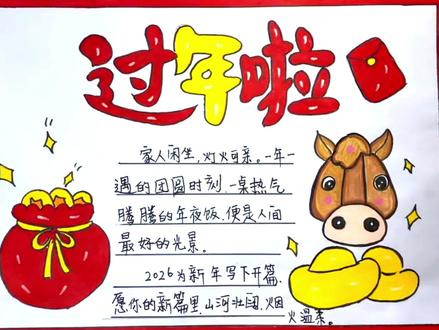 过年啦
家人闲坐,灯火可亲。一年一
遇的团圆时刻,一桌热气
腾腾的年夜饭,便是人间
最好的光景。
2026为新年写下开篇,
愿你的新篇里,山河壮阔,烟
火温柔。